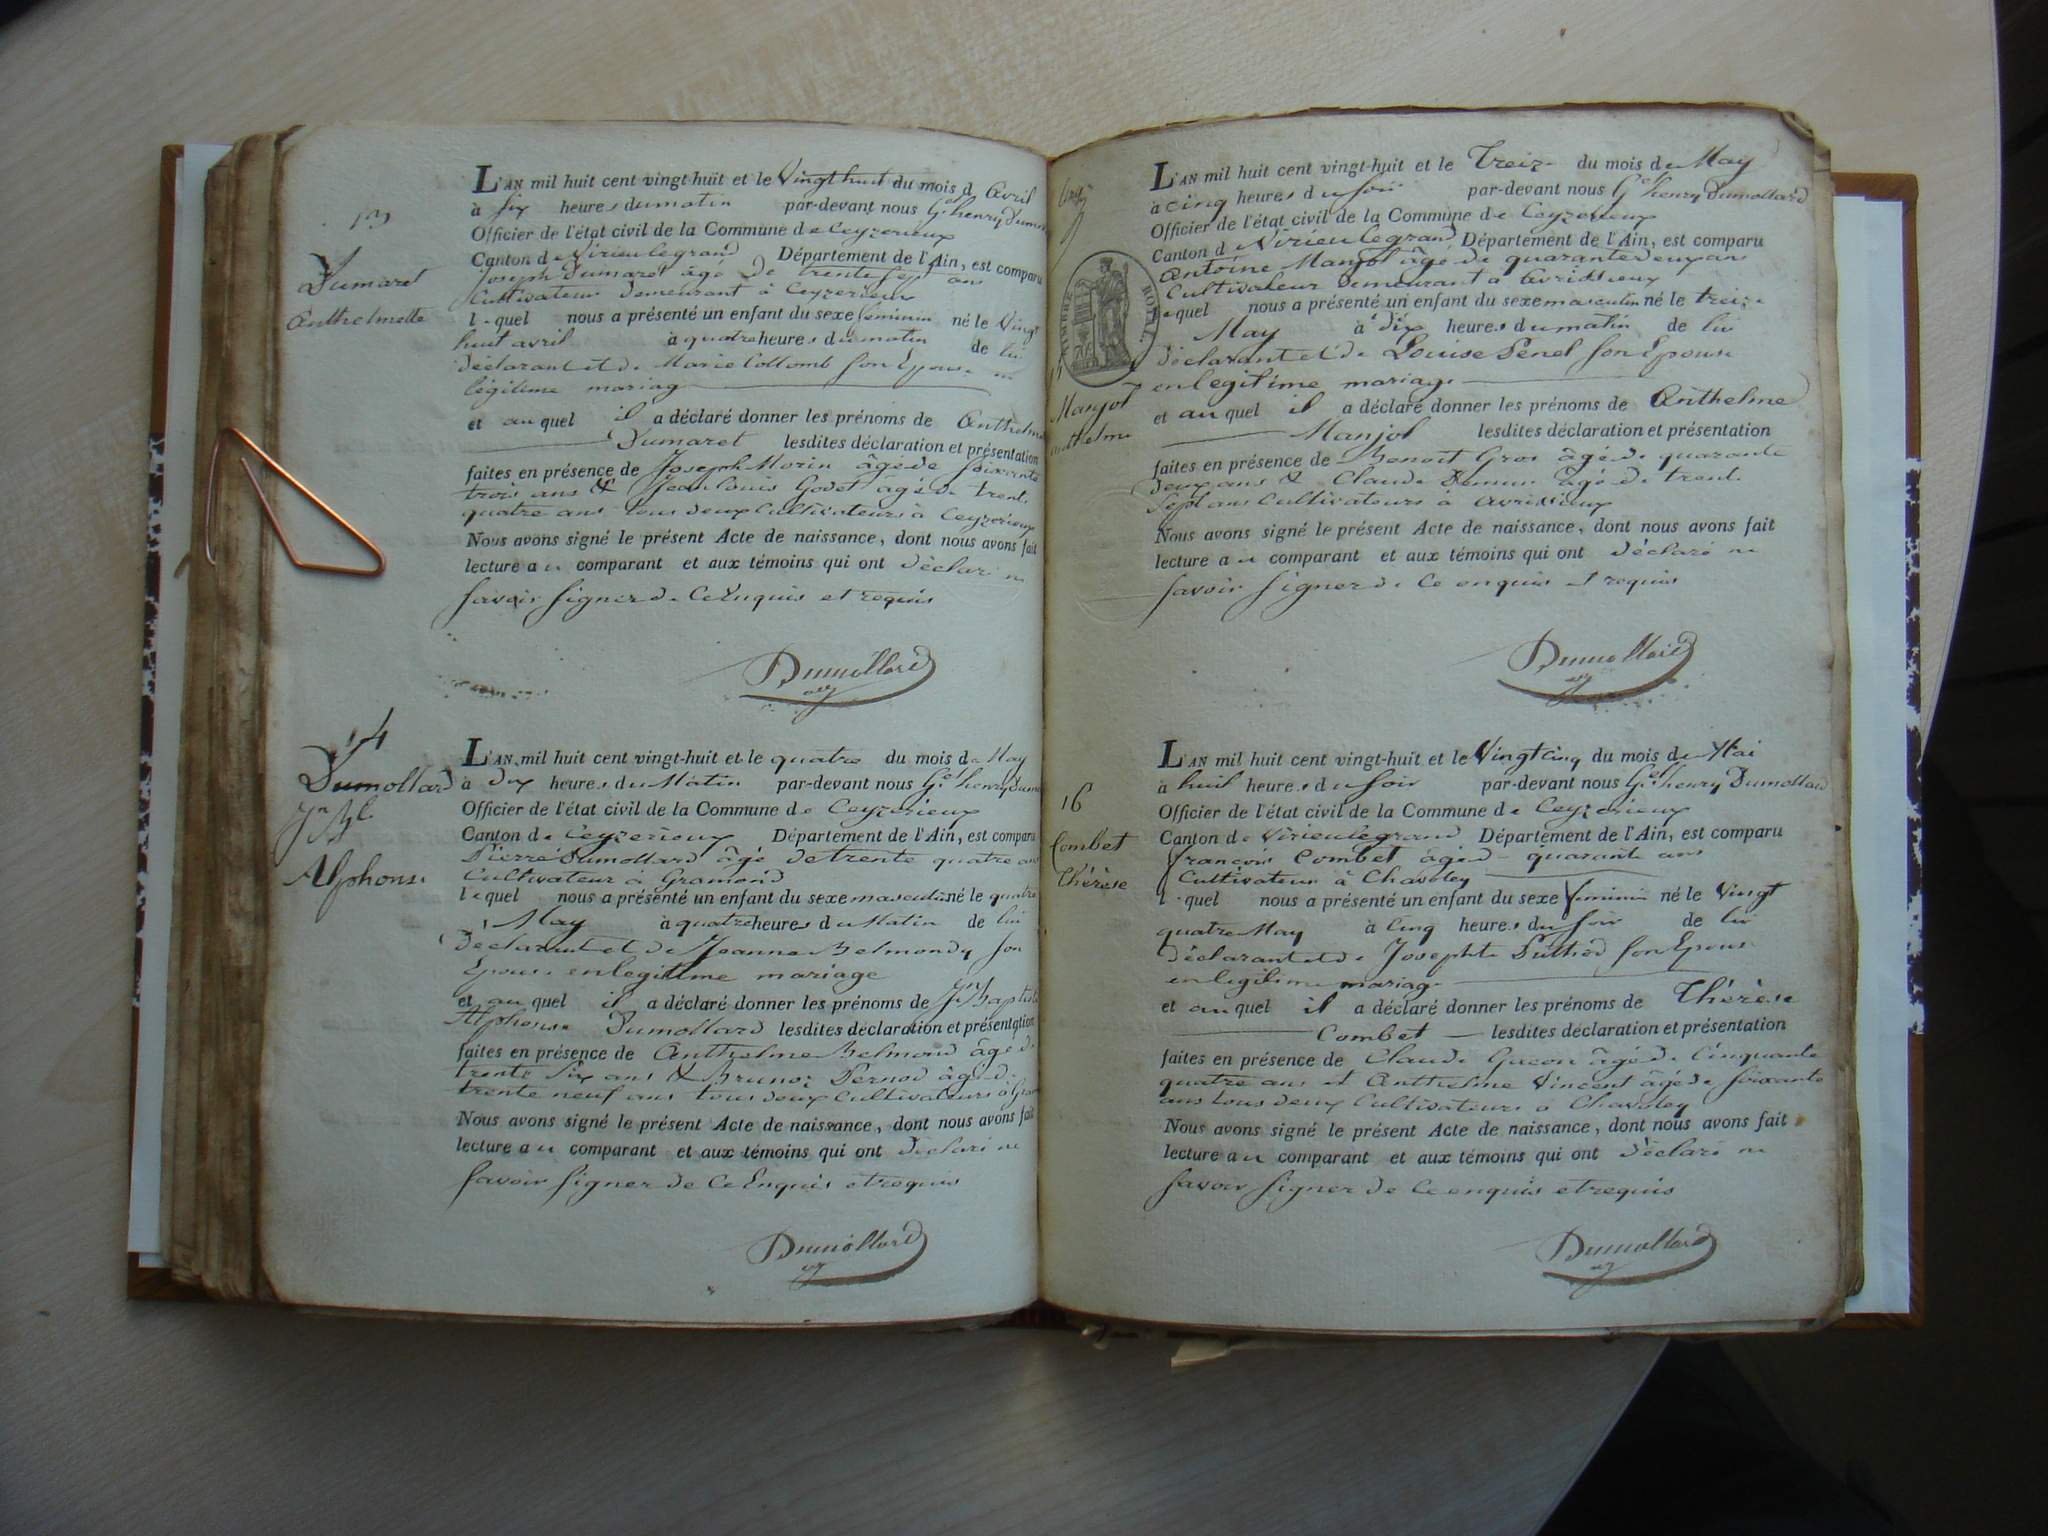 13
Dumaret
Anthelmette
L'AN mil huit cent vingt-huit et le Vingt huit du mois d Avril
à six heures du matin par-devant nous Gel henry Dumo
Officier de l'état civil de la Commune de Ceyzerieux
Canton de Virieulegrand Département de l'Ain, est comparu
Joseph Dumaret âgé de trente sept ans
Cultivateur demeurant à Ceyzerieux
lequel nous a présenté un enfant du sexe feminin né le Vingt
huit avril à quatre heures du matin de lui
déclarant et de Marie Collomb son Epouse en
légitime mariage
et auquel il a déclaré donner les prénoms de Anthelm
Dumaret lesdites déclaration et présentation
faites en présence de Joseph Morin âgé de soixante
trois ans & Jean Louis Godet âgé de trente
quatre ans tous deux Cultivateurs à Ceyzerieux
Nous avons signé le présent Acte de naissance, dont nous avons fait
lecture au comparant et aux témoins qui ont déclaré ne
savoir signer de Ce Enquis et requis
Dumollard
14
Dumollard
Jn Bte
Alphonse
L'AN mil huit cent vingt-huit et le quatre du mois de May
à dix heures du Matin par-devant nous Gel henry Dumo
Officier de l'état civil de la Commune de Ceyzerieux
Canton de Ceyzerieux Département de l'Ain, est comparu
Pierre Dumollard âgé de trente quatre ans
Cultivateur à Gramond
lequel nous a présenté un enfant du sexe masculin né le quatre
May à quatre heures du Matin de lui
Déclarant et de Jeanne Belmondy son
Epouse en legitime mariage
et auquel il a déclaré donner les prénoms de Jn Baptiste
Alphonse Dumollard lesdites déclaration et présentation
faites en présence de Anthelme Belmond âgé de
trente six ans & Bruno Pernod âgé de
trente neuf ans tous deux Cultivateurs à Gram
Nous avons signé le présent Acte de naissance, dont nous avons fait
lecture au comparant et aux témoins qui ont déclaré ne
savoir signer de Ce Enquis et requis
Dumollard
TIMBRE ROYAL
15
Manjot
Anthelme
L'AN mil huit cent vingt-huit et le Treize du mois de May
à cinq heures du soir par-devant nous Gel henry Dumollard
Officier de l'état civil de la Commune de Ceyzerieux
Canton de Virieulegrand Département de l'Ain, est comparu
Antoine Manjot âgé de quarante deux ans
Cultivateur demeurant à Avrissieux
lequel nous a présenté un enfant du sexe masculin né le treize
May à dix heures du matin de lui
déclarant et de Louise Penel son Epouse
en legitime mariage
et auquel il a déclaré donner les prénoms de Anthelme
Manjot lesdites déclaration et présentation
faites en présence de Benoit Gros âgé de quarante
deux ans & Claude âgé de trente
sept ans Cultivateurs à Avrissieux
Nous avons signé le présent Acte de naissance, dont nous avons fait
lecture au comparant et aux témoins qui ont déclaré ne
savoir signer de Ce enquis et requis
Dumollard
16
Combet
Thérèse
L'AN mil huit cent vingt-huit et le Vingt cinq du mois de Mai
à huit heures du soir par-devant nous Gel henry Dumollard
Officier de l'état civil de la Commune de Ceyzerieux
Canton de Virieulegrand Département de l'Ain, est comparu
francois Combet âgé de quarante ans
Cultivateur à Chavoley
lequel nous a présenté un enfant du sexe feminin né le Vingt
quatre May à cinq heures du soir de lui
déclarant et de Josephte Puthod son Epouse
en legitime mariage
et auquel il a déclaré donner les prénoms de Thérèse
Combet lesdites déclaration et présentation
faites en présence de Claude Gacon âgé de Cinquante
quatre ans et Anthelme Vincent âgé de soixante
ans tous deux Cultivateurs à Chavoley
Nous avons signé le présent Acte de naissance, dont nous avons fait
lecture au comparant et aux témoins qui ont déclaré ne
savoir signer de Ce enquis et requis
Dumollard